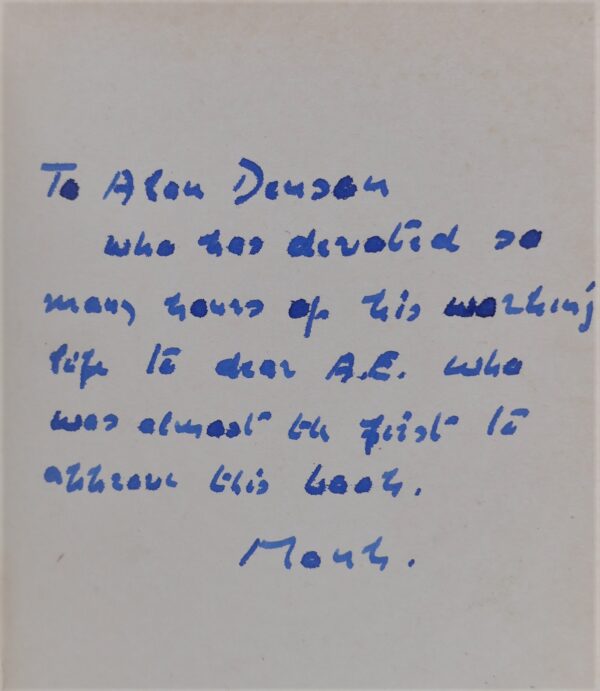 To Alan Denson
who has devoted so
many hours of his working
life to dear A.E. who
was almost the first to
approve this book.
Monk.